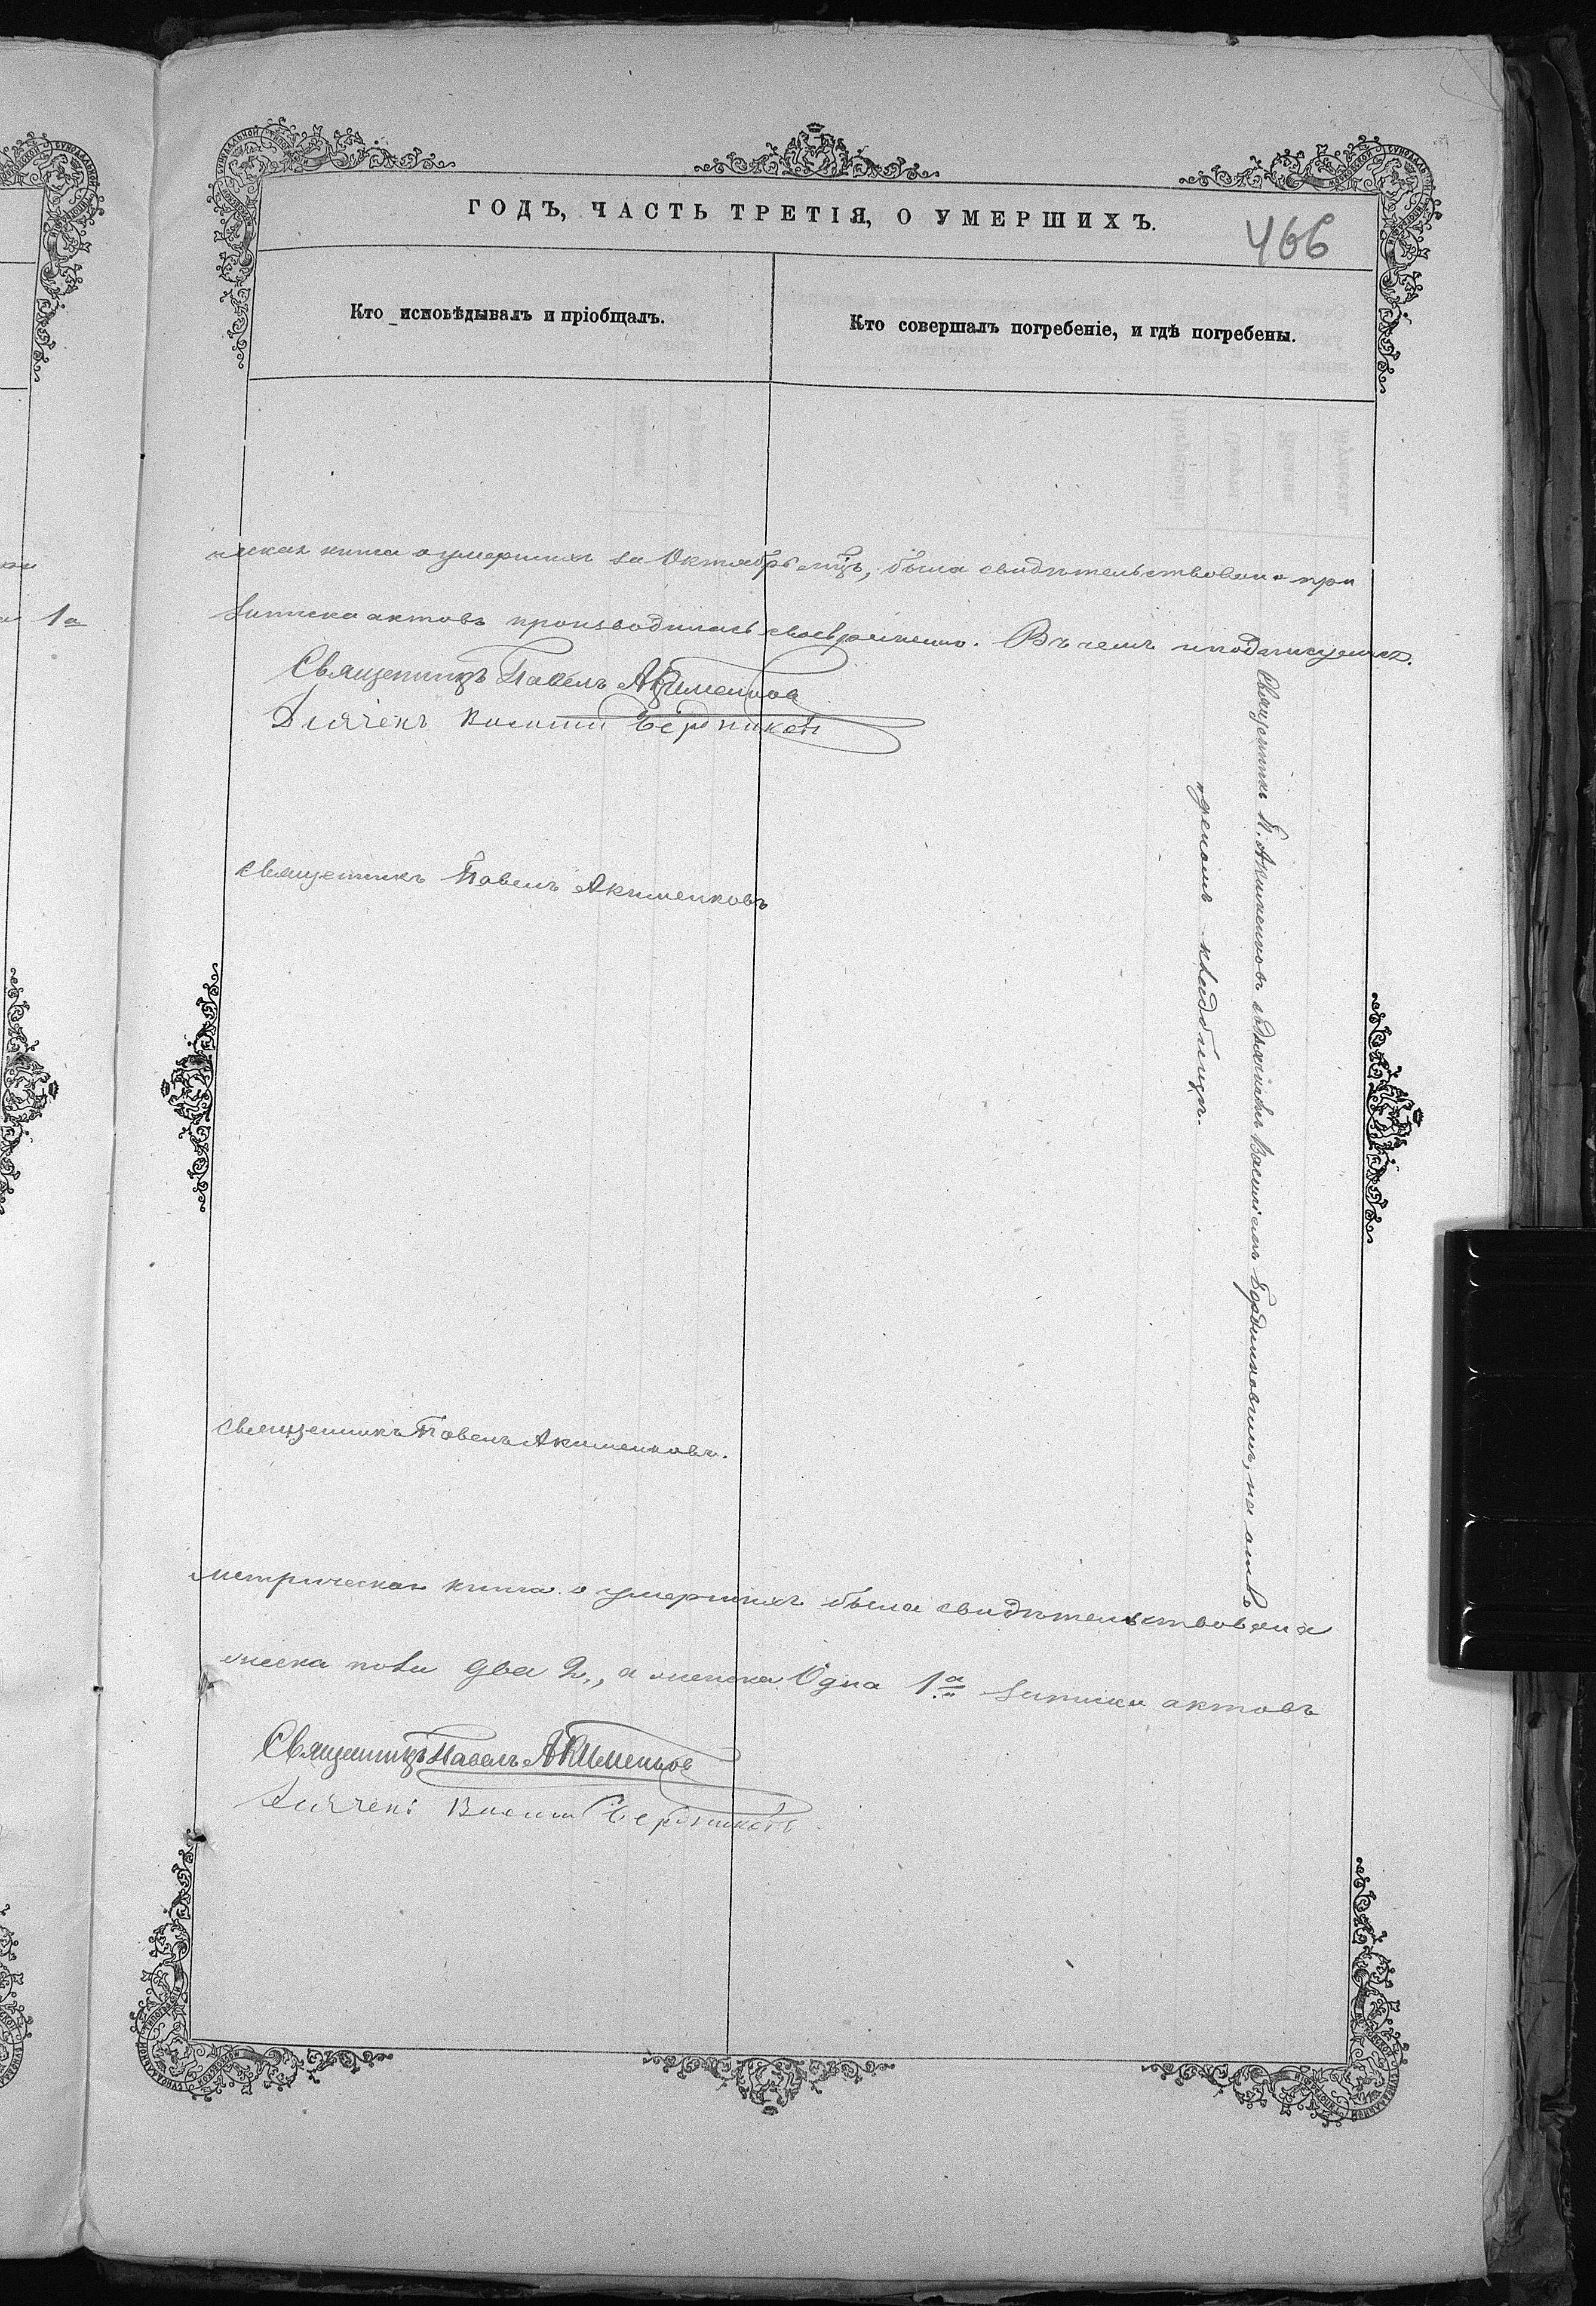 ГОДЪ, ЧАСТЬ ТРЕТІЯ, О УМЕРШИХЪ.
466
Кто исповѣдывалъ и пріобщалъ.
Кто совершалъ погребеніе, и гдѣ погребены.
ческая книга о умершихъ за Октябрь мцъ, была свидѣтельствована при
1а
записка актовъ производилась своевременно. Въ чемъ и подписуемся.
Священникъ Павелъ Акименковъ
Дьячекъ
Священникъ Павелъ Акименковъ
Священникъ П. Акименковъ съ дьячкомъ Василіемъ на
приходскомъ кладбищѣ.
Священникъ Павелъ Акименковъ.
метрическая книга о умершихъ была свидѣтельствована
мужеска пола два 2, а женска Одна 1а записка актовъ
Священникъ Павелъ Акименковъ
Дьячекъ